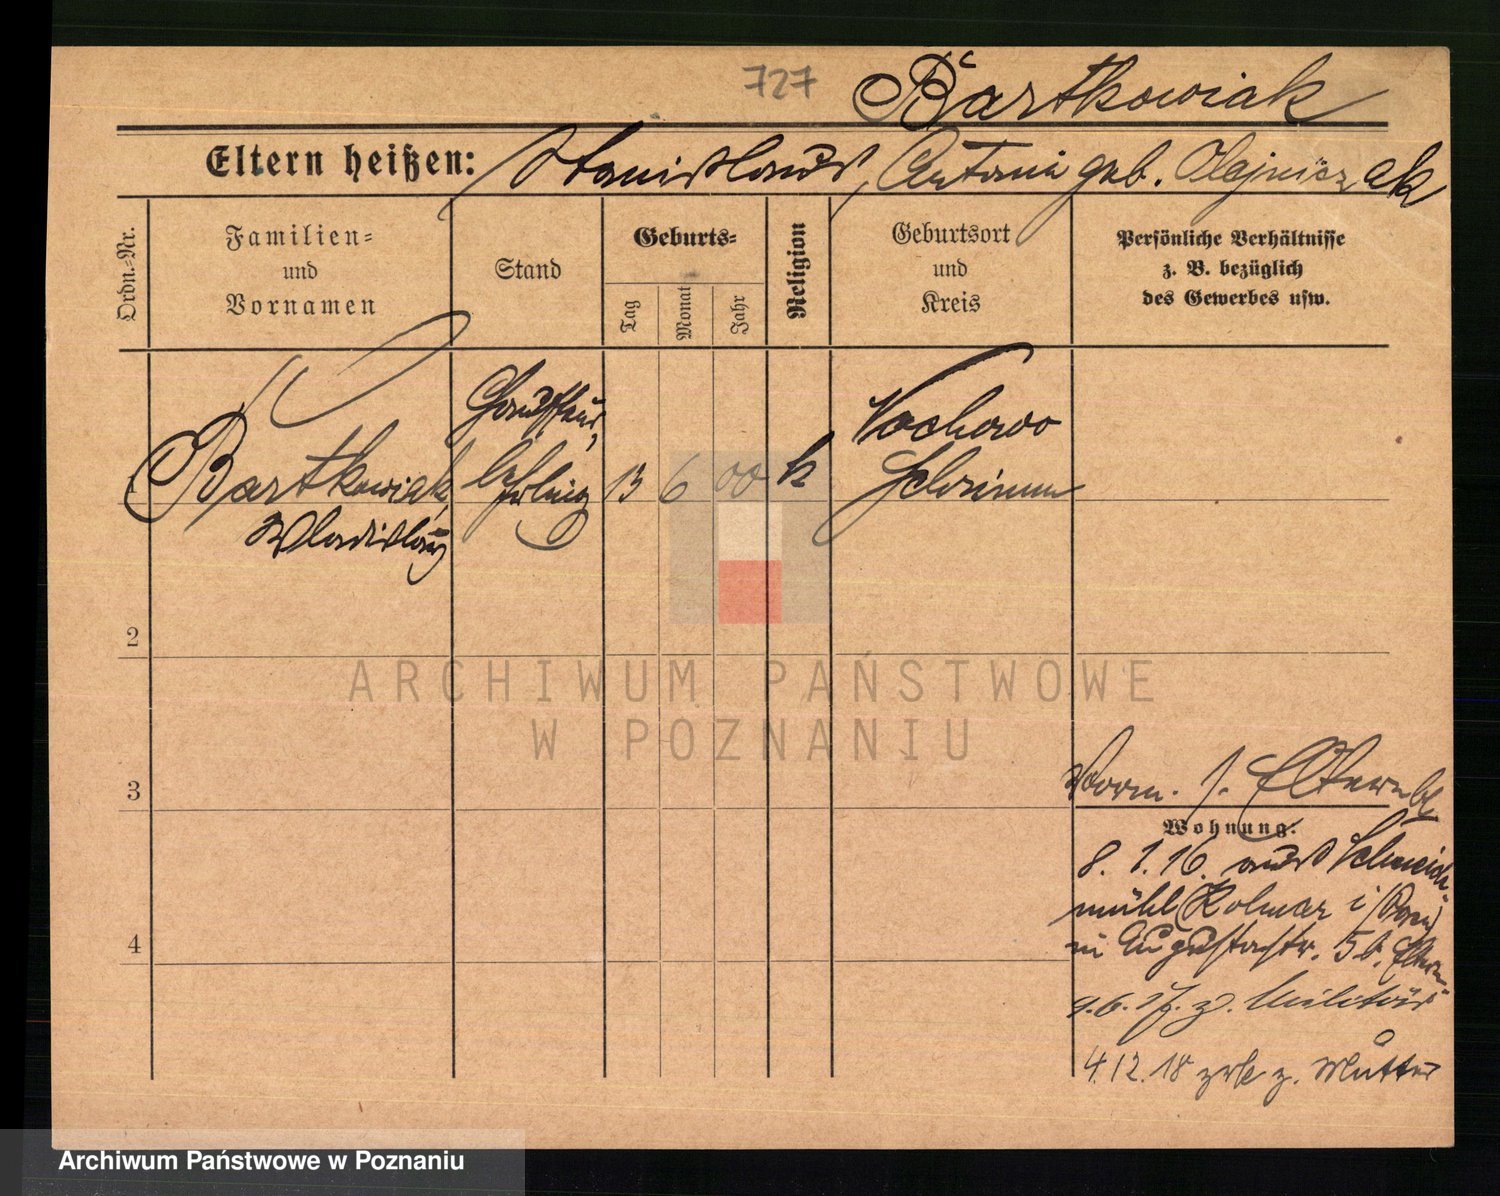 727
Bartkowiak
Eltern heißen: Stanislaus, Antonie geb. Olejniczak
Ordn.-Nr.
Familien-
und
Vornamen
Stand
Geburts-
Tag
Monat
Jahr
Religion
Geburtsort
und
Kreis
Persönliche Verhältnisse
z. B. bezüglich
des Gewerbes usw.
1
Bartkowiak
Wladislaus
Chauffeur,
Lehrling
13
6
00
k
Nochowo
Schrimm
2
3
4
Vorm. s. Elternbl.
Wohnung.
8. 1. 16. aus Schneide-
mühl (Kolmar i/Posen)
in Augustastr. 5 b. Eltern
9. 6. 17. z. Militär
4. 12. 18 zrk z. Mutter
ARCHIWUM PAŃSTWOWE
W POZNANIU
Archiwum Państwowe w Poznaniu